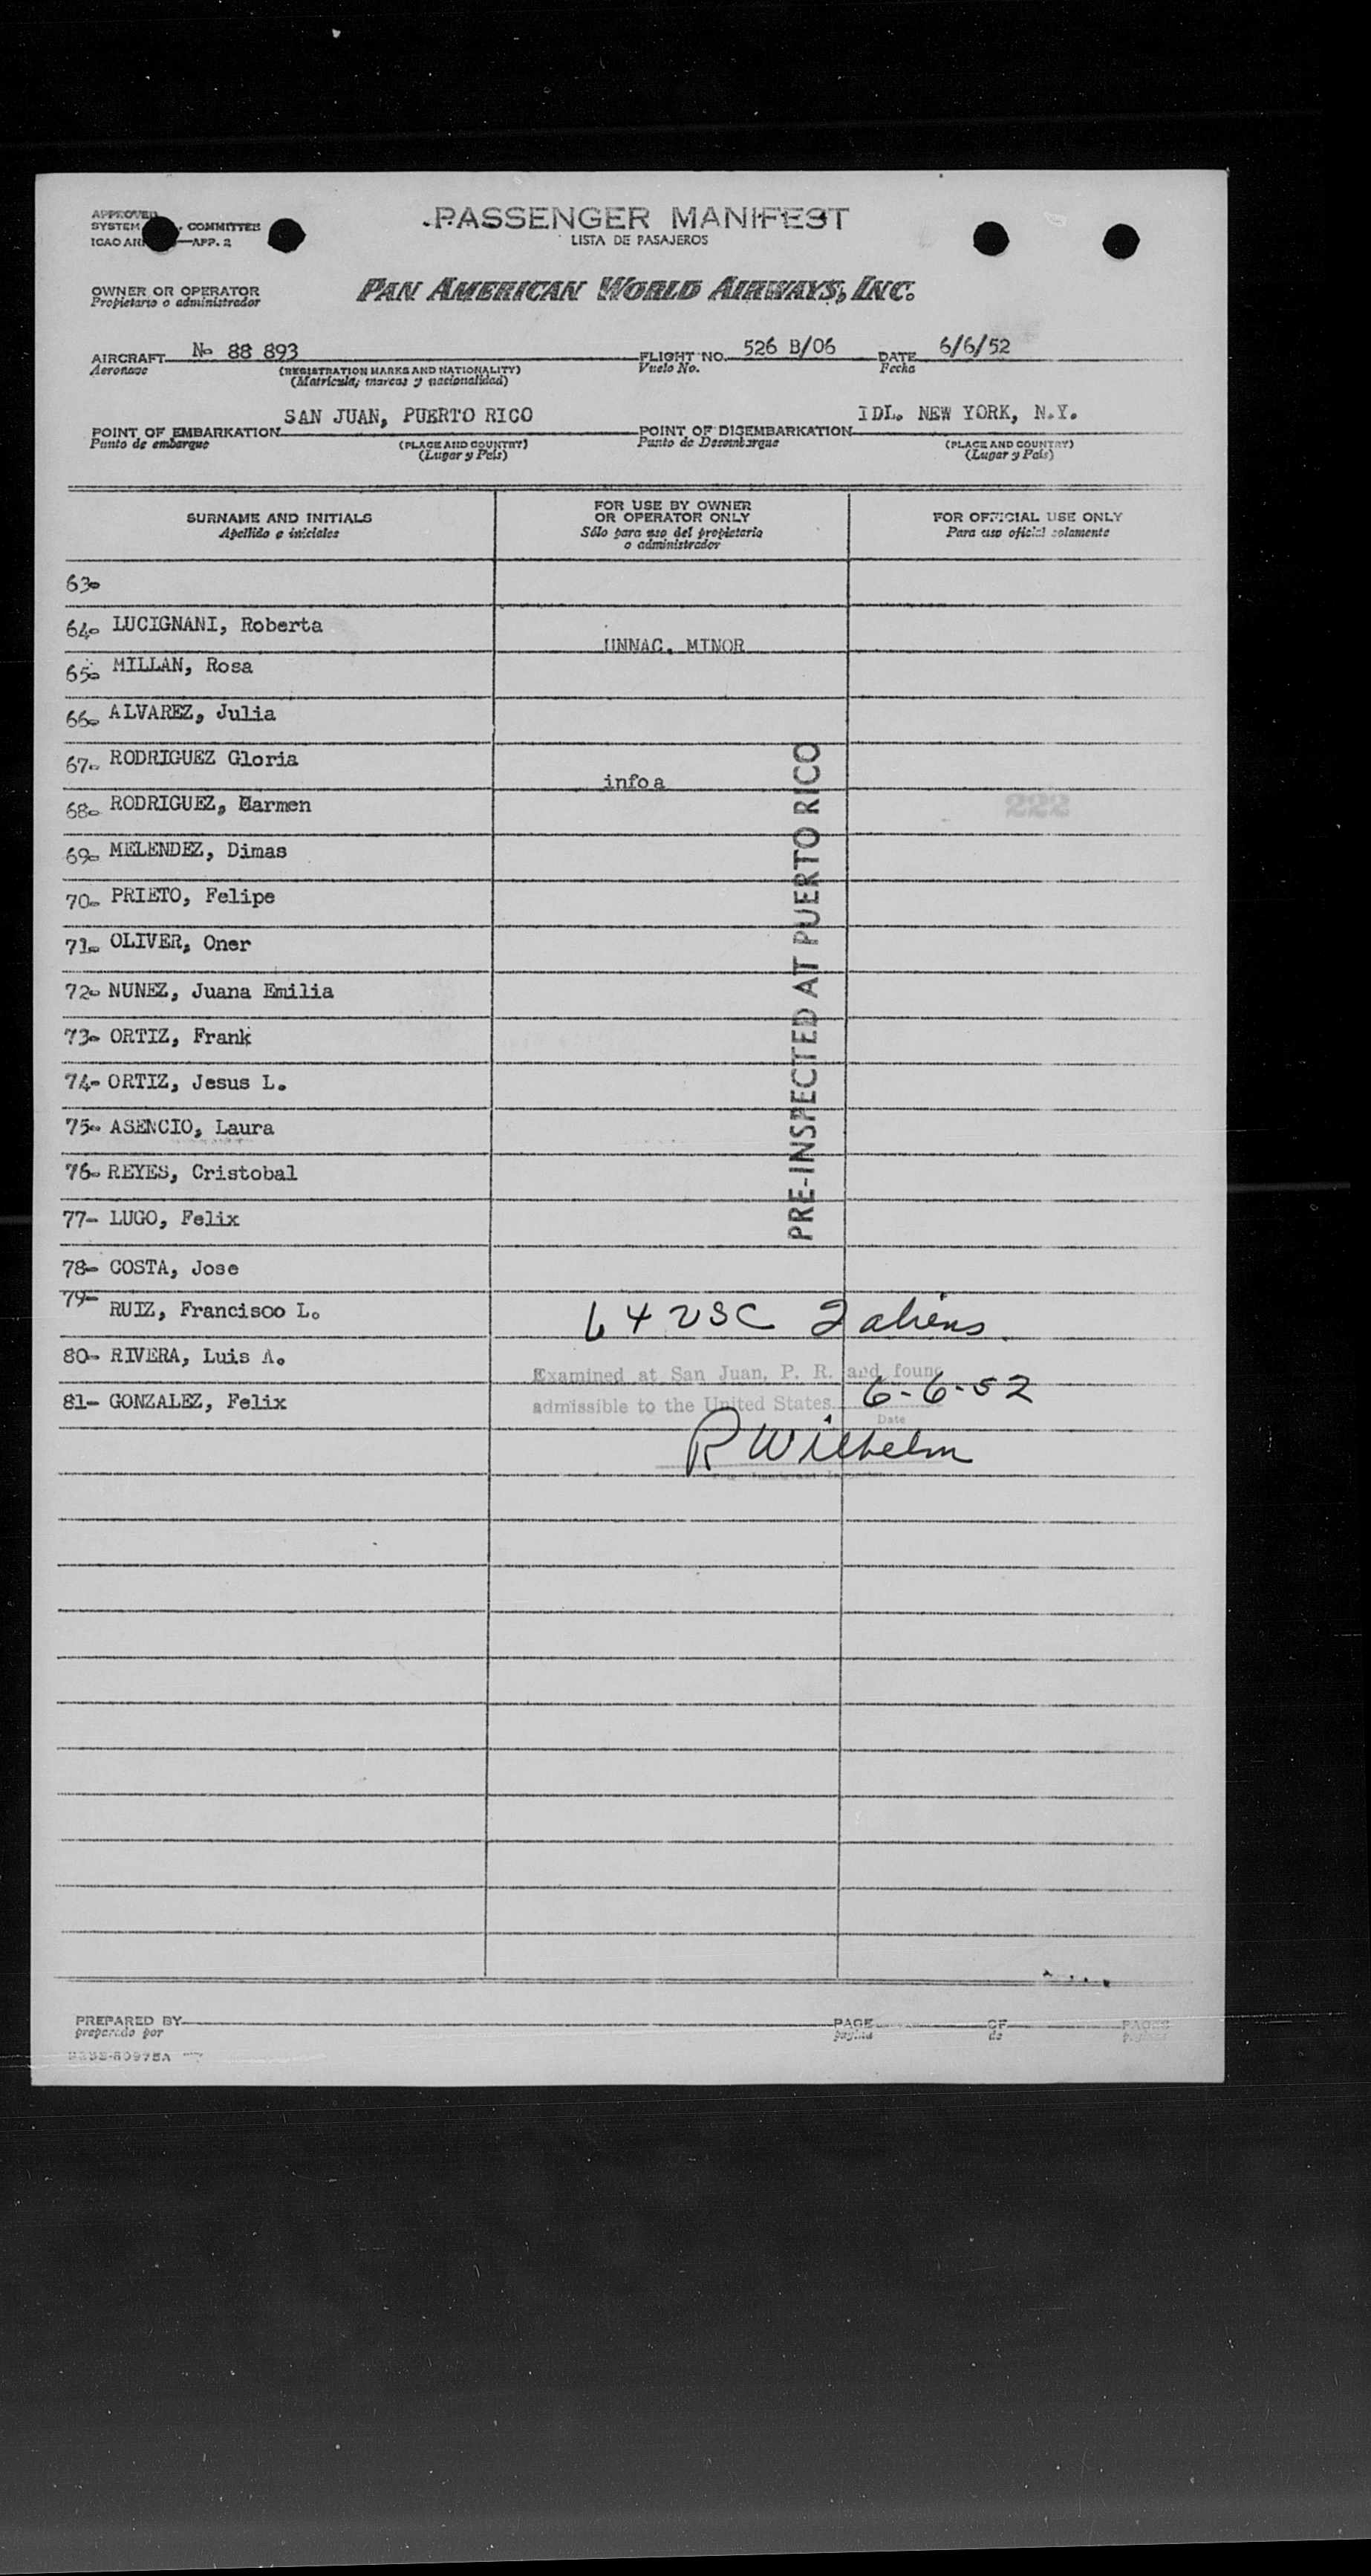 APPROVED
SYSTEM COMMITTEE
ICAO APP. 2
PASSENGER MANIFEST
LISTA DE PASAJEROS
OWNER OR OPERATOR
Propietario o administrador
PAN AMERICAN WORLD AIRWAYS, INC.
AIRCRAFT No 88 893 FLIGHT NO. 526 B/06 DATE 6/6/52
Aeronave (REGISTRATION MARKS AND NATIONALITY) Vuelo No. Fecha
(Matrícula, marcas y nacionalidad)
POINT OF EMBARKATION SAN JUAN, PUERTO RICO POINT OF DISEMBARKATION IDL. NEW YORK, N.Y.
Punto de embarque (PLACE AND COUNTRY) Punto de Desembarque (PLACE AND COUNTRY)
(Lugar y País) (Lugar y País)
SURNAME AND INITIALS
Apellido e iniciales
FOR USE BY OWNER
OR OPERATOR ONLY
Sólo para uso del propietario
o administrador
FOR OFFICIAL USE ONLY
Para uso oficial solamente
63-
64- LUCIGNANI, Roberta
UNNAC. MINOR
65- MILLAN, Rosa
66- ALVAREZ, Julia
67- RODRIGUEZ Gloria
infoa
68- RODRIGUEZ, Harmen
222
69- MELENDEZ, Dimas
70- PRIETO, Felipe
71- OLIVER, Oner
72- NUNEZ, Juana Emilia
73- ORTIZ, Frank
74- ORTIZ, Jesus L.
75- ASENCIO, Laura
76- REYES, Cristobal
77- LUGO, Felix
78- COSTA, Jose
79- RUIZ, Francisco L.
80- RIVERA, Luis A.
81- GONZALEZ, Felix
PRE-INSPECTED AT PUERTO RICO
64 USC 2 aliens.
Examined at San Juan, P. R. and found
admissible to the United States 6-6-52
Date
R Wilhelm
PREPARED BY PAGE OF PAGES
preparado por página de páginas